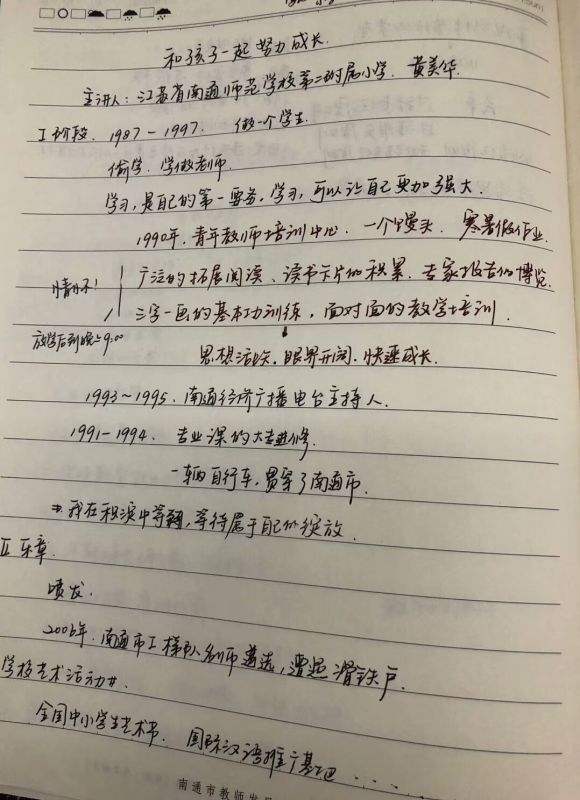 和孩子一起努力成长.
主讲人: 江苏省南通师范学校第二附属小学. 黄美华.
I 阶段. 1987-1997. 做一个学生.
偷学. 学做老师.
学习,是自己的第一要务,学习,可以让自己更加强大.
1990年,青年教师培训中心. 一个馒头. 寒暑假作业.
广泛的拓展阅读、读书卡片的积累、专家报告的博览.
三字一画的基本功训练,面对面的教学培训.
放学后到晚上9:00
思想活跃,眼界开阔,快速成长.
1993~1995. 南通经济广播电台主持人.
1991-1994. 专业课的大专进修.
一辆自行车,贯穿了南通市.
我在积淀中等,等待属于自己的绽放.
II 乐章.
喷发.
2006年. 南通市I梯队名师遴选,遭遇滑铁卢.
学校艺术活动
全国中小学生艺术节. 国际汉语推广基地......
南通市教师发